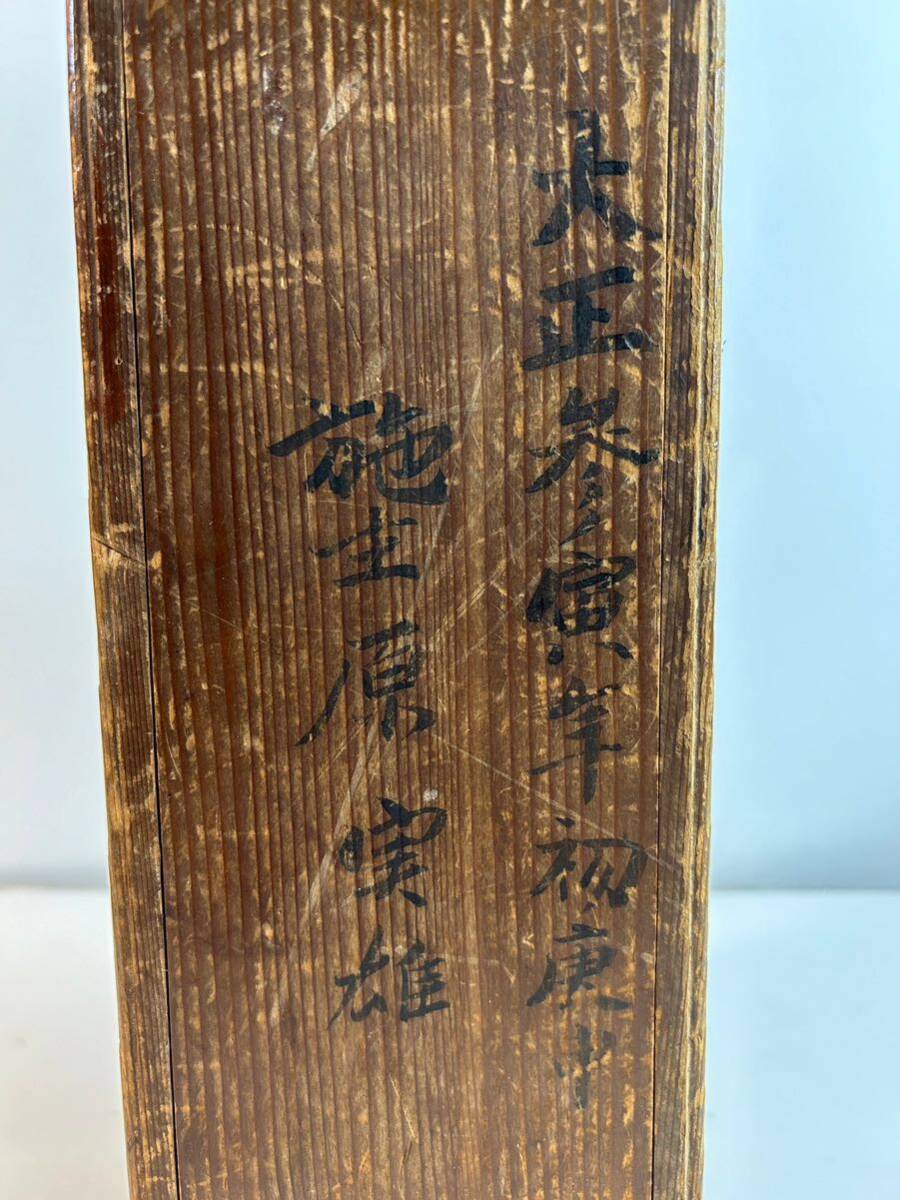 大正参寅年初庚申
施主原実雄